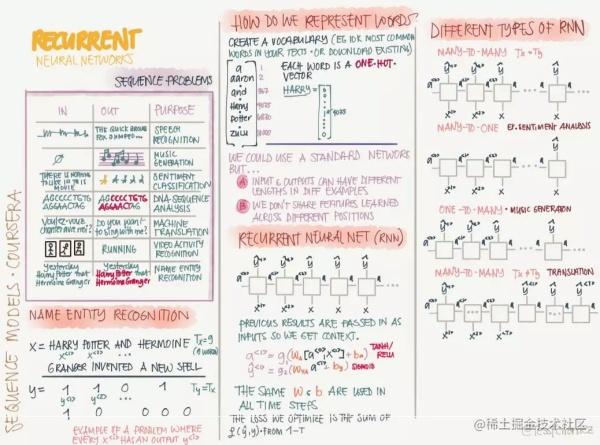 RECURRENT
NEURAL NETWORKS
SEQUENCE MODELS · COURSERA
SEQUENCE PROBLEMS
IN OUT PURPOSE
THE QUICK BROWN
FOX JUMPED...
SPEECH
RECOGNITION
MUSIC
GENERATION
THERE IS NOTHING
TO LIKE IN THIS
MOVIE
SENTIMENT
CLASSIFICATION
AGCCCCTGTG
AGGAACTAG
AGCCCCTGTG
AGGAACTAG
DNA SEQUENCE
ANALYSIS
Voulez-vous
chanter avec moi?
Do you want
to sing with me?
MACHINE
TRANSLATION
RUNNING
VIDEO ACTIVITY
RECOGNITION
Yesterday
Harry Potter met
Hermione Granger
Yesterday
Harry Potter met
Hermione Granger
NAME ENTITY
RECOGNITION
NAME ENTITY RECOGNITION
X = HARRY POTTER AND HERMOINE
Tx=9
(9 WORDS)
x<1> x<2> x<3> ...
GRANGER INVENTED A NEW SPELL
y = 1 1 0 1
Ty=Tx
y<1> y<2> ...
1 0 0 0 0
EXAMPLE OF A PROBLEM WHERE
EVERY X<i> HAS AN OUTPUT y<i>
HOW DO WE REPRESENT WORDS?
CREATE A VOCABULARY (EG 10K MOST COMMON
WORDS IN YOUR TEXTS · OR DOWNLOAD EXISTING)
a 1
aaron 2
and 367
Harry 4075
potter
zulu 10000
EACH WORD IS A ONE·HOT·
VECTOR
HARRY=
4075
WE COULD USE A STANDARD NETWORK
BUT...
A INPUT & OUTPUTS CAN HAVE DIFFERENT
LENGTHS IN DIFF EXAMPLES
B WE DON'T SHARE FEATURES LEARNED
ACROSS DIFFERENT POSITIONS
RECURRENT NEURAL NET (RNN)
PREVIOUS RESULTS ARE PASSED IN AS
INPUTS SO WE GET CONTEXT.
TANH/
RELU
SIGMOID
THE SAME W & b ARE USED IN
ALL TIME STEPS
THE LOSS WE OPTIMIZE IS THE SUM OF
L(ŷ,y) · FROM 1-T
DIFFERENT TYPES OF RNN
MANY·TO·MANY Tx=Ty
MANY·TO·ONE EX·SENTIMENT ANALYSIS
ONE·TO·MANY · MUSIC GENERATION
MANY·TO·MANY Tx≠Ty TRANSLATION
@稀土掘金技术社区